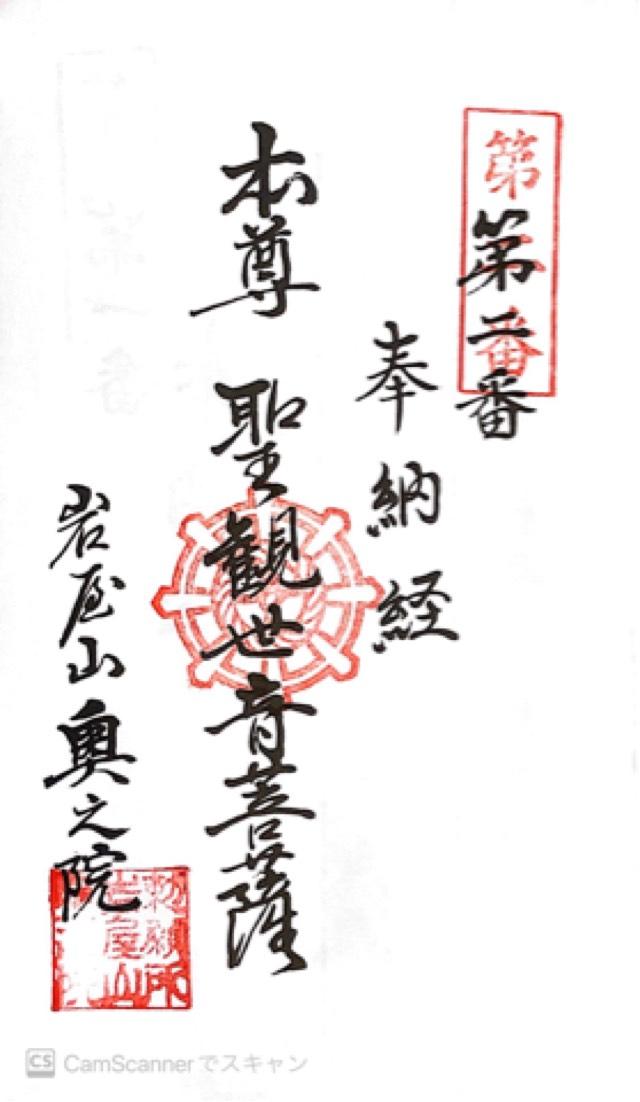 第 番
第二番
奉納経
本尊 聖観世音菩薩
岩屋山奥之院
勅願所
岩屋山
CS CamScannerでスキャン